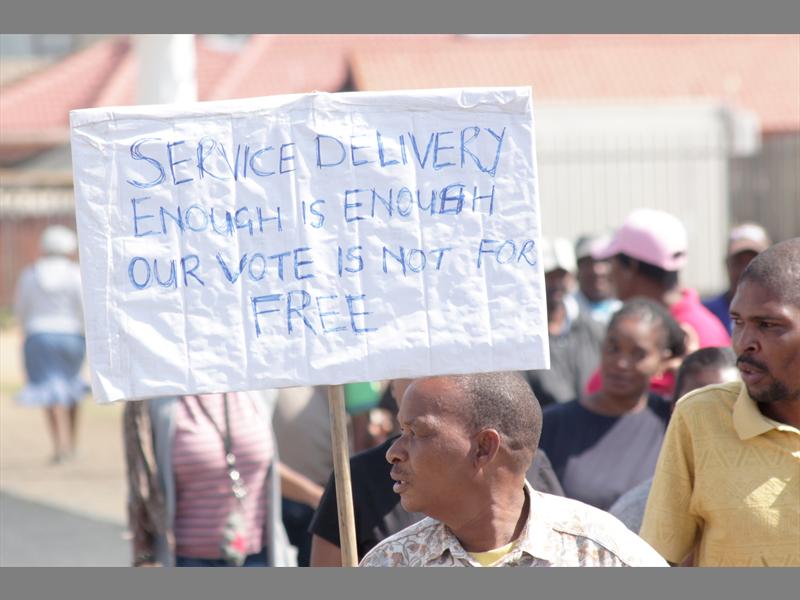 SERVICE DELIVERY
ENOUGH IS ENOUGH
OUR VOTE IS NOT FOR
FREE